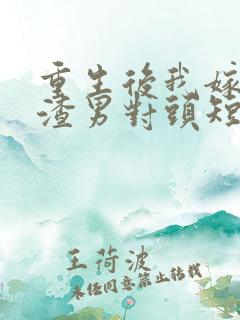 重生後我嫁
渣男對頭短
王荷波
未经同意禁止转载